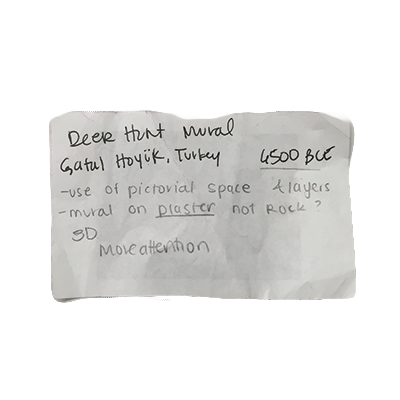 Deer Hunt Mural
Çatal Hoyük, Turkey 6500 BCE
-use of pictorial space & layers
-mural on plaster not Rock?
3D
More attention